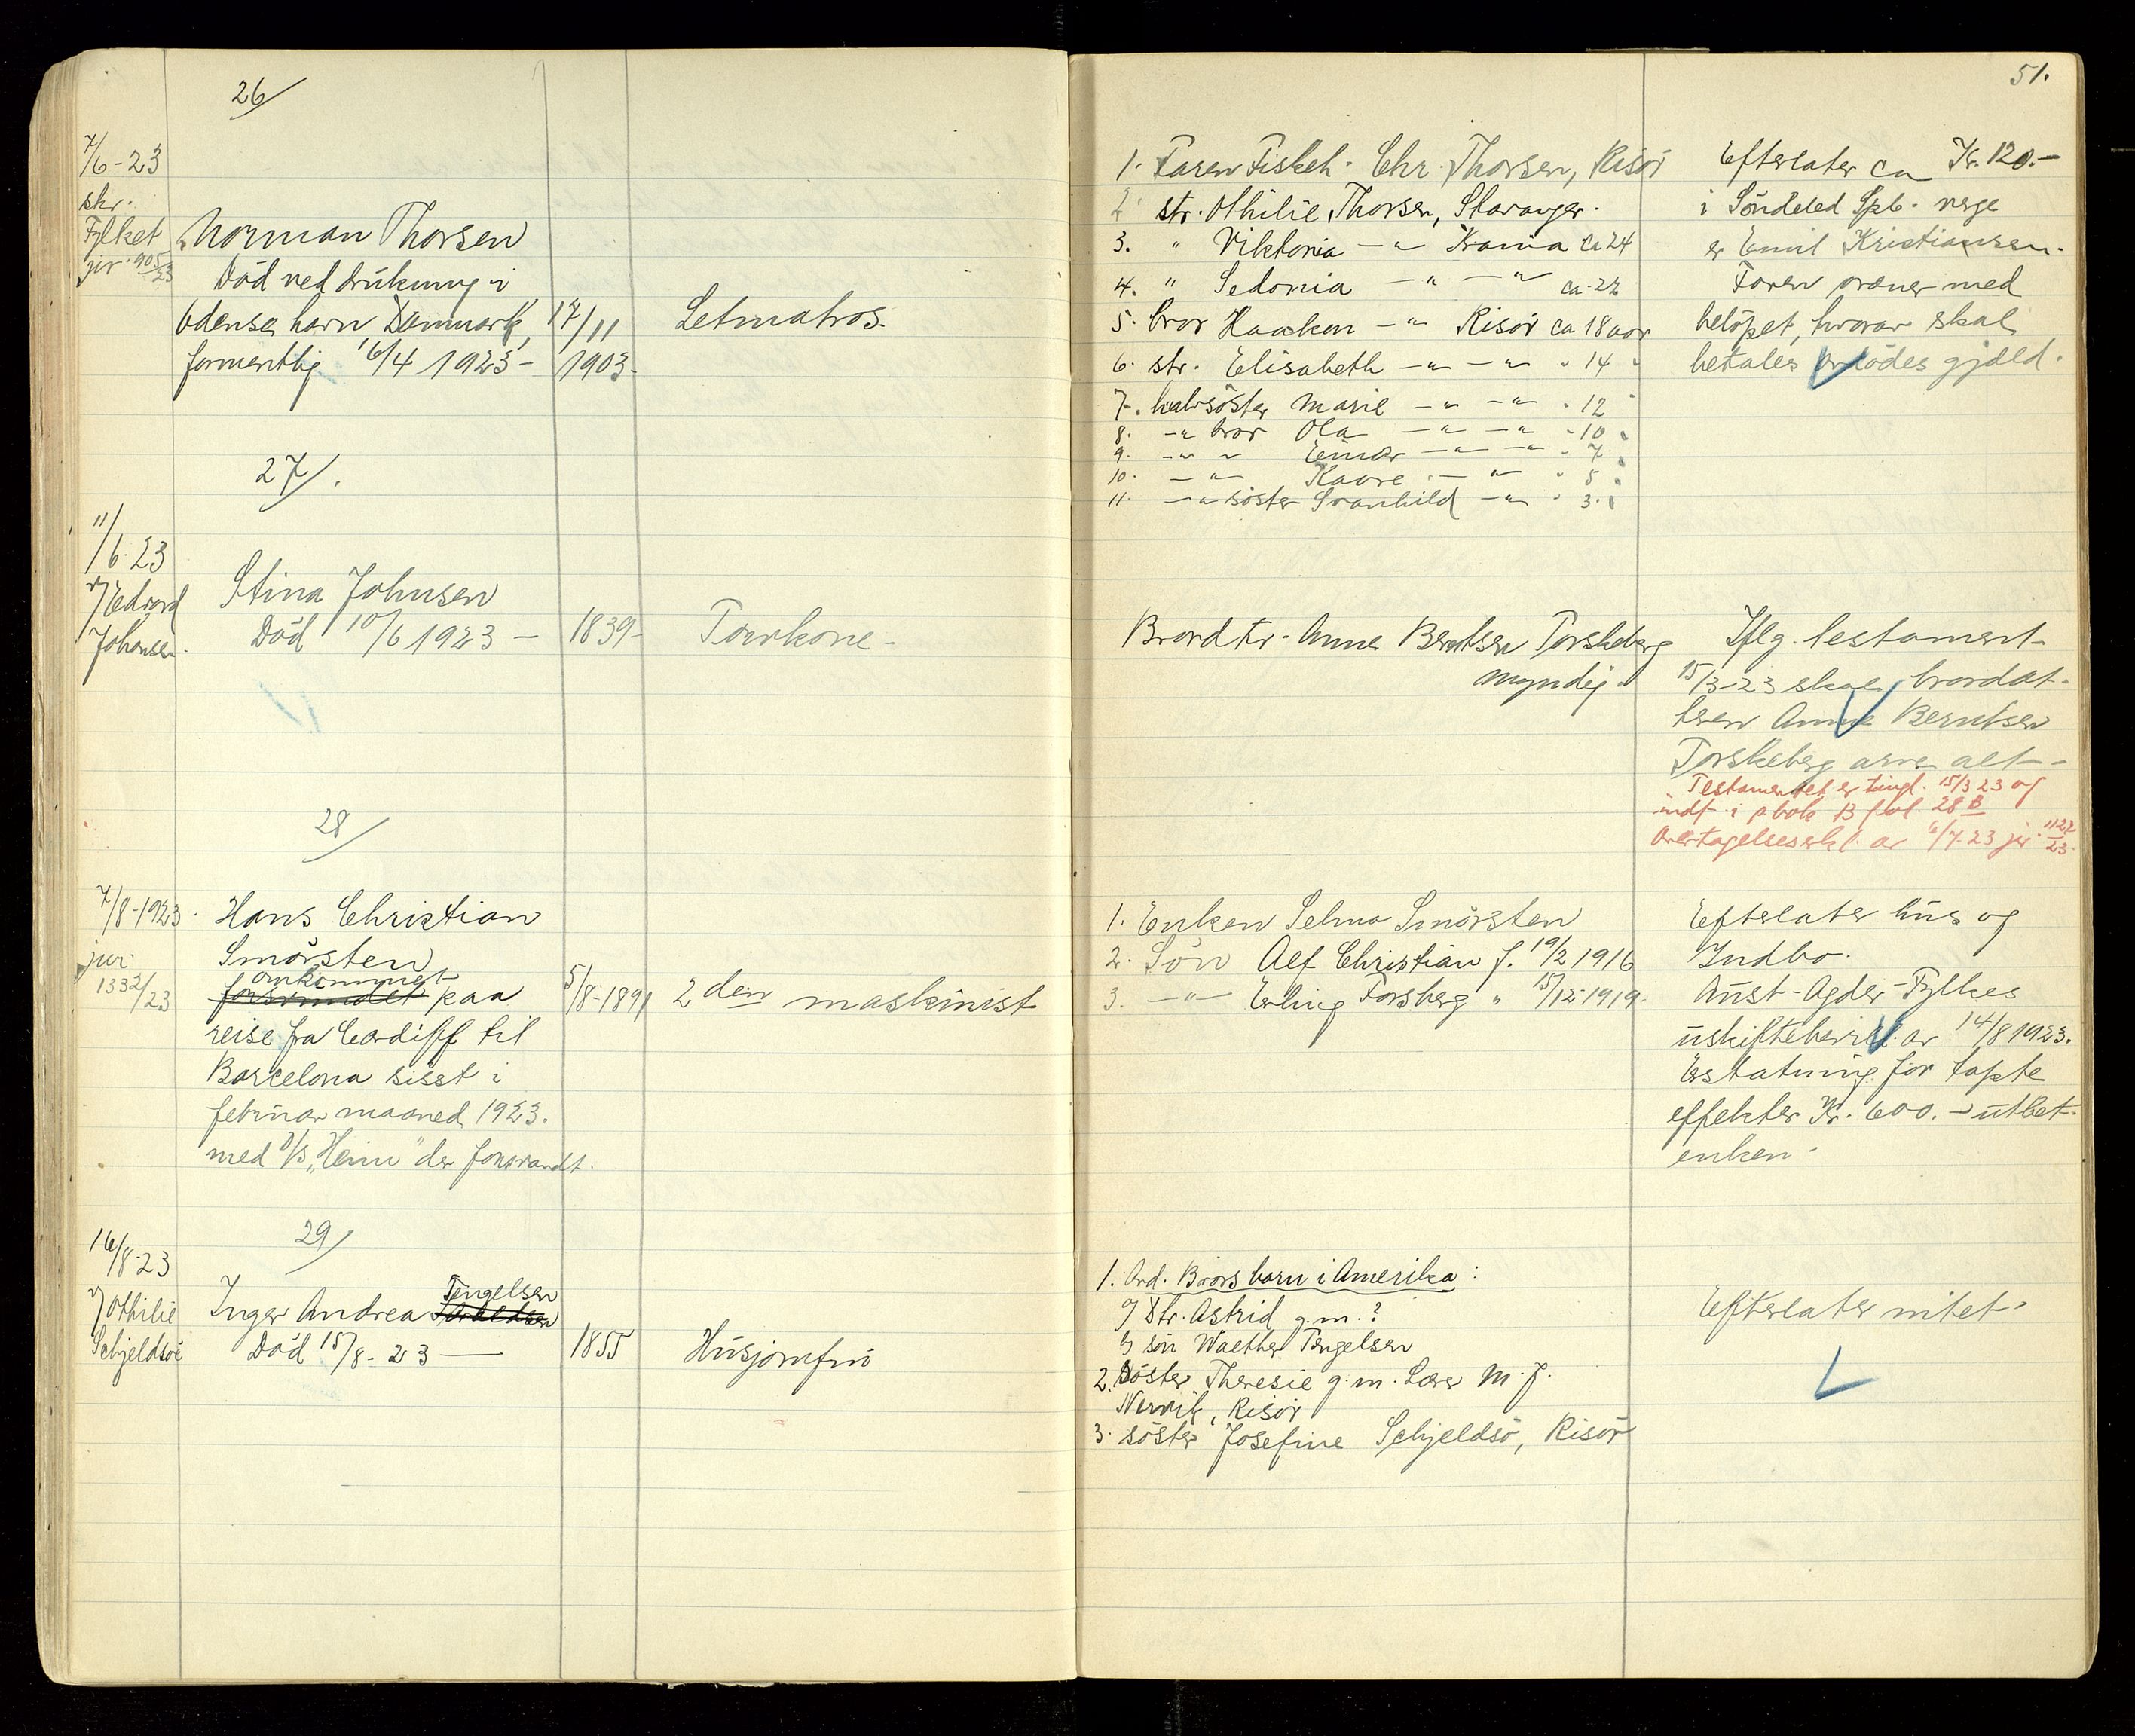 26/
7/6-23
skr.
Fylket
jnr. 905/23
Norman Thorsen
Död ved drukning i
Odense havn Danmark,
formentlig 16/4 1923 -
17/11
1903.
Letmatros.
27/.
11/6-23
v/ Edvard
Johnsen.
Stina Johnsen
Död 10/6 1923 -
1839-
Tourkone -
28/
7/8-1923.
jnr.
1332/23
Hans Christian
Smörsten
omkommet
forsvundet paa
reise fra Cardiff til
Barcelona sisst i
februar maaned 1923.
med D/S „Heim" der forsvandt.
5/8-1891
2den maskinist
29/
16/8-23
v/ Othilie
Schjeldsöe
Tengelsen
Inger Andrea
Död 15/8-23 —
1855
Husjomfru
51.
1. Faren Fisketh. Chr. Thorsen, Risör
2. str. Othilie Thorsen, Stavanger.
3. " Viktoria - " - Krania ca 24
4. " Sedonia - " - " - ca. 22
5. bror Haakon - " - Risör ca 18 aar
6. str. Elisabeth - " - " - " 14 "
7. halvsöster Marie - " - " - " 12 "
8. - " - bror Ola - " - " - " 10 "
9. - " - " Einar - " - " - " 7 "
10. - " - Kaare - " - " 5 "
11. - " - söster Svanhild - " - " 3. "
Efterlater ca Kr. 120.-
i Söndeled Spb. verge
er Emil Kristiansen.
Faren oväner med
belöpet, hvorav skal
betales avdödes gjæld.
Brordtr. Anne Berntsen Torskeberg
myndig.
Iflg. testament
15/3-23 skal brordat-
teren Anne Berntsen
Torskeberg arve alt -
Testamentet er tingl. 15/3 23 og
indf. i pbok B fol. 28 B
Overtagelseserkl. av 6/7-23 jnr. 1127/23.
1. Enken Selma Smörsten
2. Sön Alf Christian f. 19/2 1916
3. - " - Erling Forsberg " 15/12-1919.
Efterlater hus og
Indbo.
Aust-Agder Fylkes
uskiftebevill. av 14/8 1923.
Erstatning for tapte
effekter Kr. 600.- utbet.
enken -
1. Avd. Brors barn i Amerika:
a/ Dtr. Astrid g.m. ?
b/ sön Walther Tengelsen
2. Söster Theresie g.m. Lærer M. J.
Nervik, Risör
3. söster Josefine Schjeldsö, Risör
Efterlater intet.